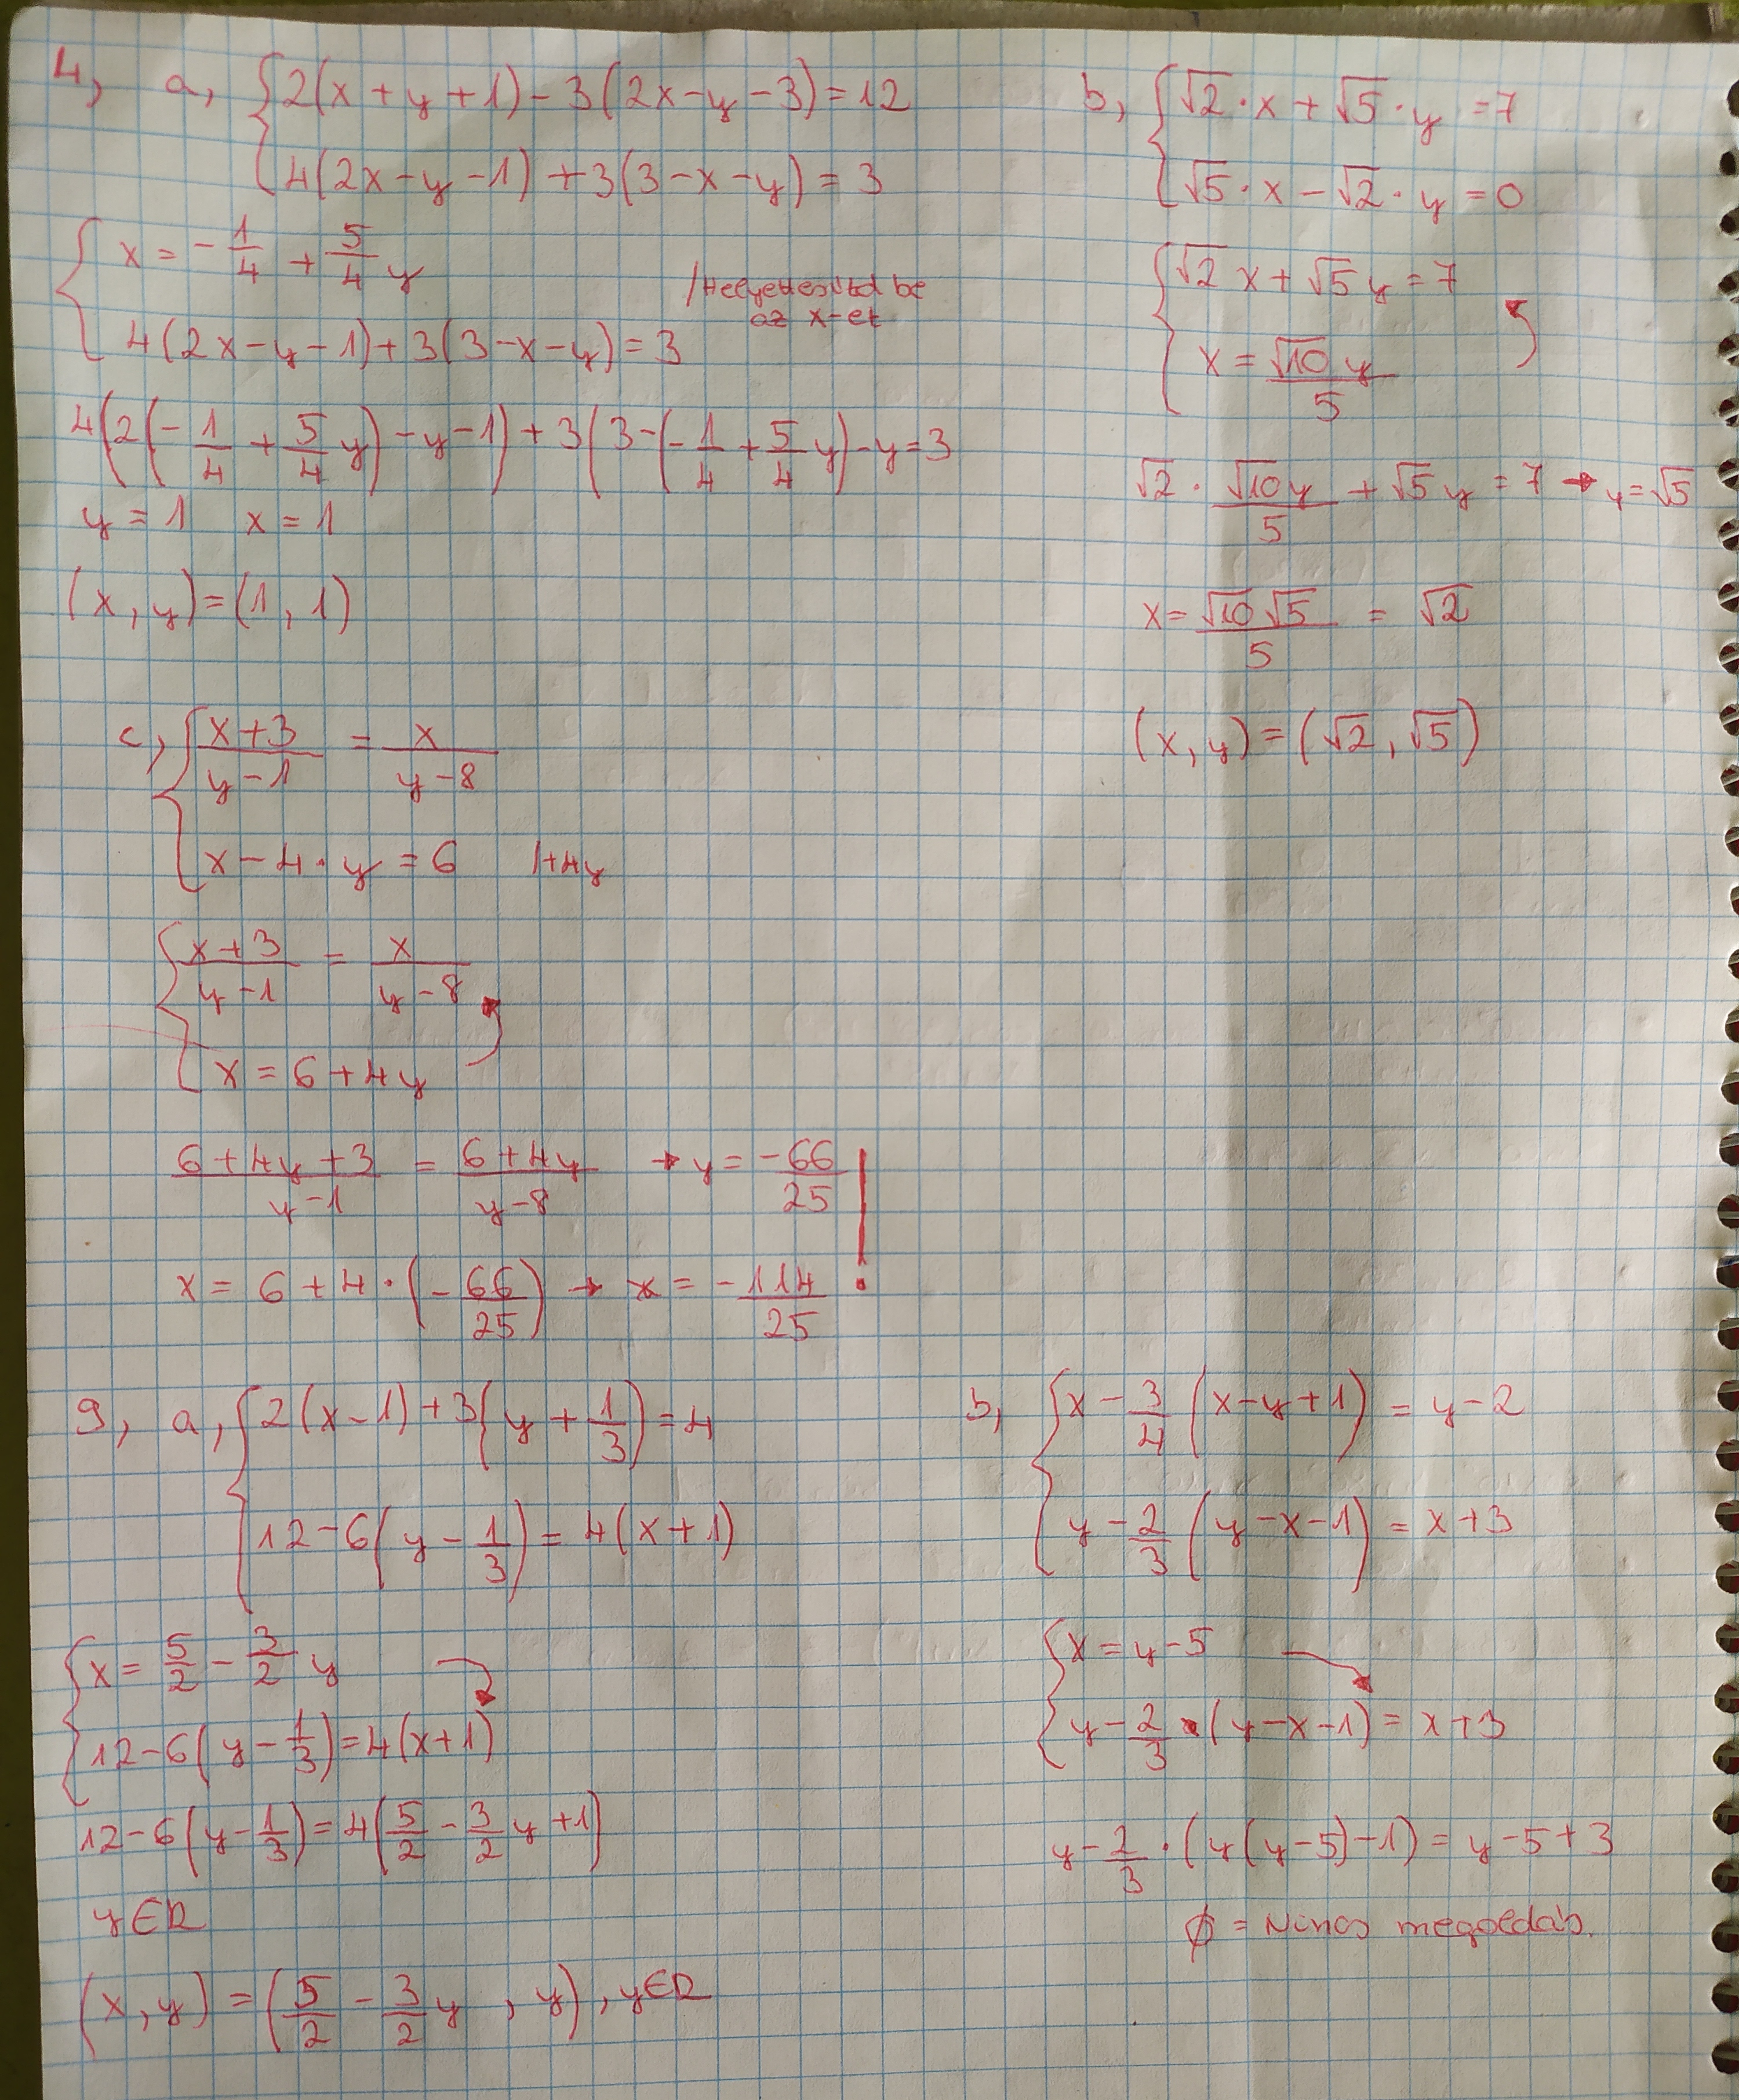 4, a, {2(x+y+1)-3(2x-y-3)=12
4(2x-y-1)+3(3-x-y)=3
{x=-1/4+5/4y
/Helyettesítsd be
az x-et
4(2x-y-1)+3(3-x-y)=3
4(2(-1/4+5/4y)-y-1)+3(3-(-1/4+5/4y)-y=3
y=1 x=1
(x,y)=(1,1)
b, {√2·x+√5·y=7
√5·x-√2·y=0
{√2x+√5y=7
x=√10y/5
√2·√10y/5+√5y=7→y=√5
x=√10√5/5=√2
(x,y)=(√2,√5)
c, {x+3/y-1=x/y-8
x-4·y=6 /+4y
{x+3/y-1=x/y-8
x=6+4y
6+4y+3/y-1=6+4y/y-8→y=-66/25 !
x=6+4·(-66/25)→x=-114/25
9, a, {2(x-1)+3(y+1/3)=4
12-6(y-1/3)=4(x+1)
{x=5/2-3/2y
12-6(y-1/3)=4(x+1)
12-6(y-1/3)=4(5/2-3/2y+1)
y∈R
(x,y)=(5/2-3/2y,y),y∈R
b, {x-3/4(x-y+1)=y-2
y-2/3(y-x-1)=x+3
{x=y-5
y-2/3·(y-x-1)=x+3
y-2/3·(y(y-5)-1)=y-5+3
∅=Nincs megoldás.